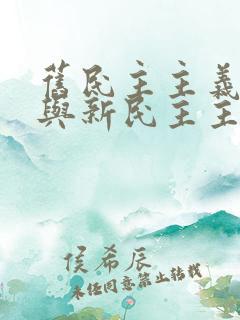 舊民主主義
與新民主主
侯希辰
未任同意禁止转载